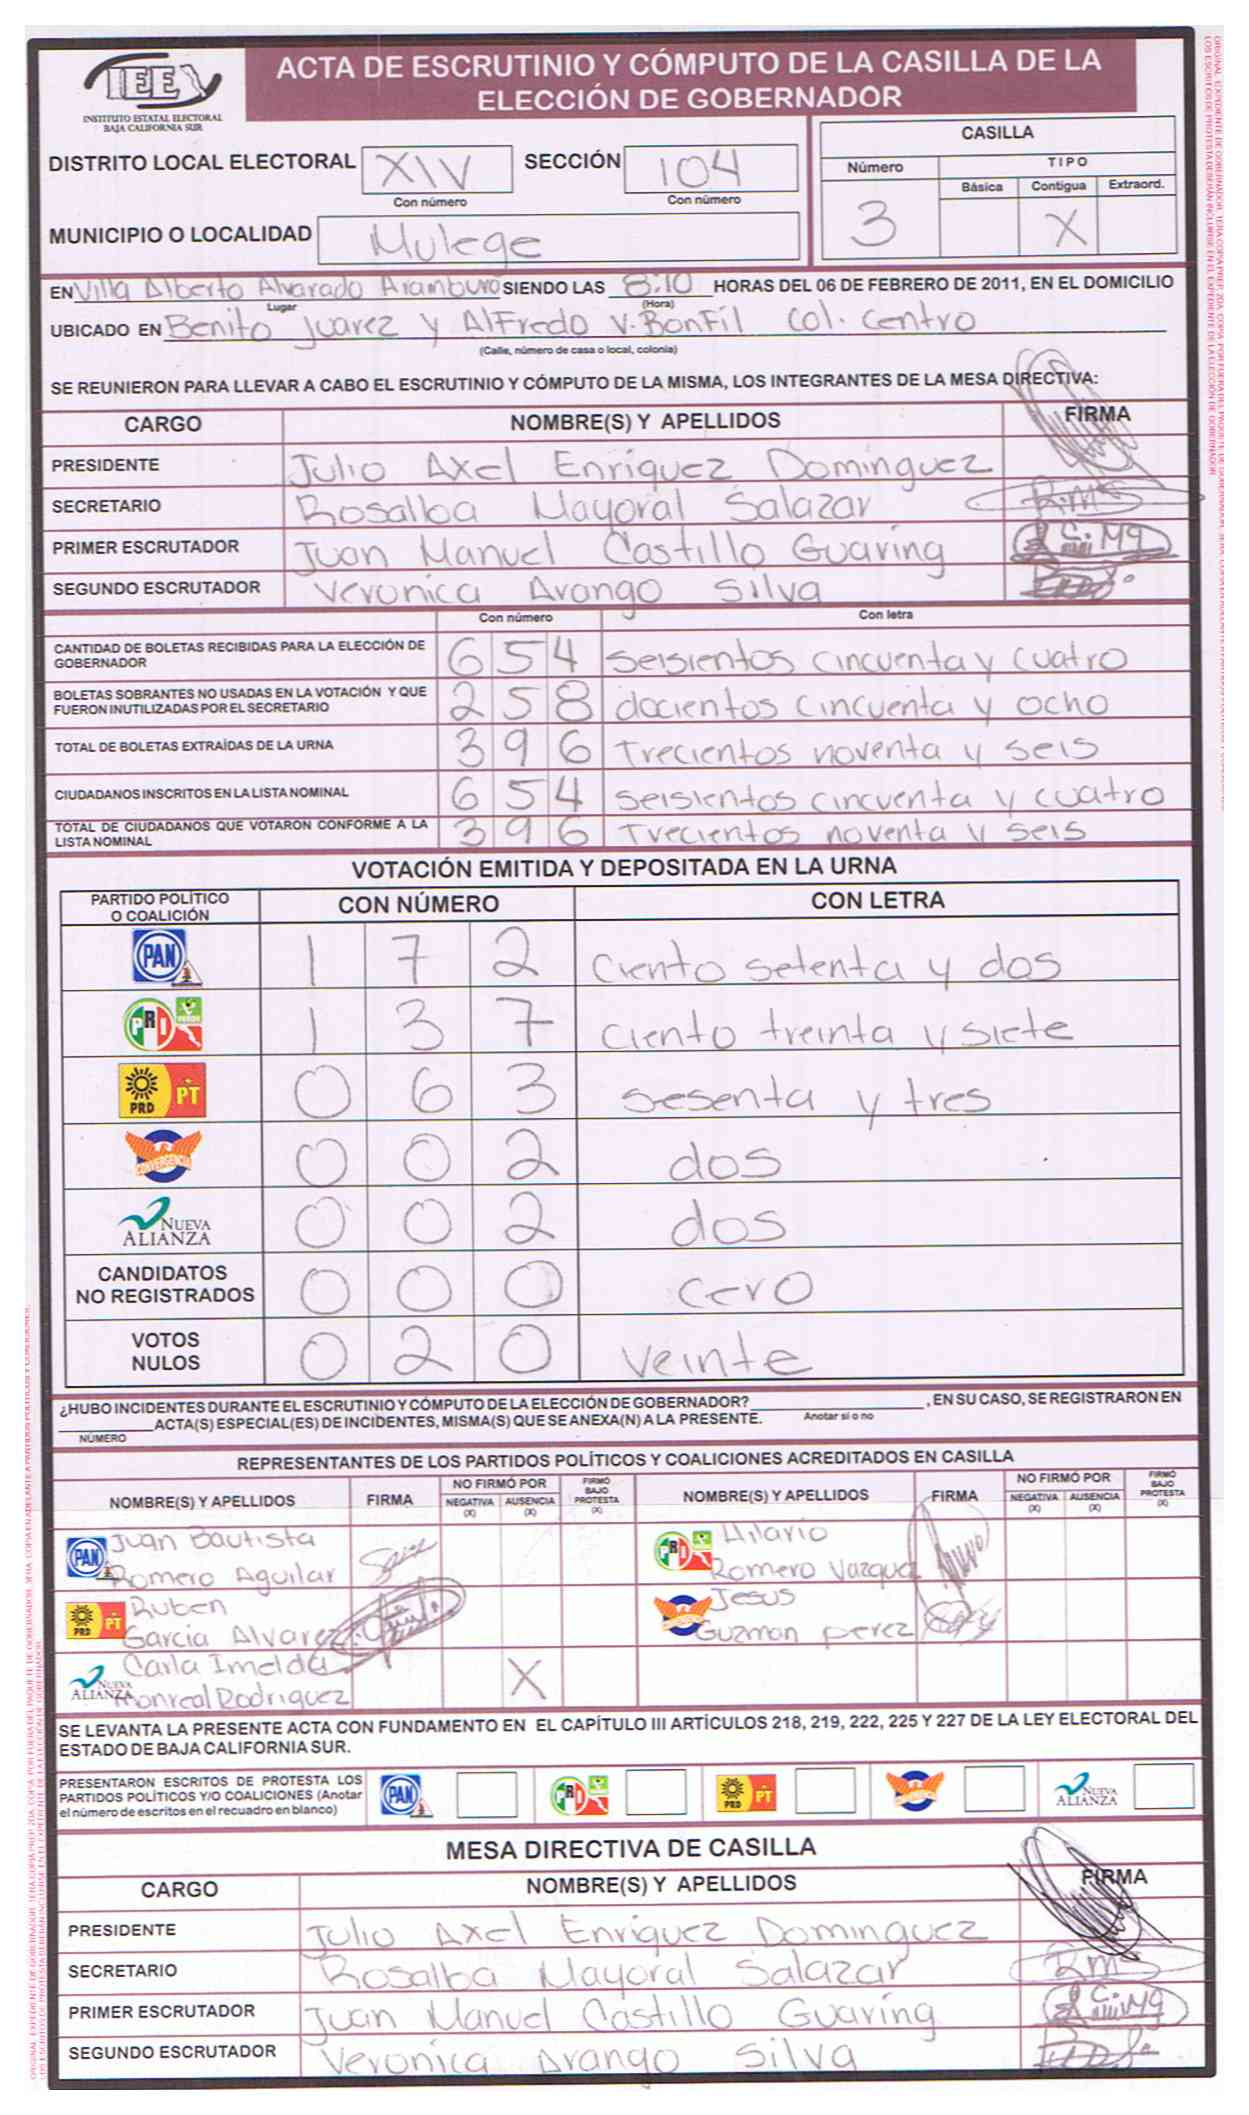 IEE
INSTITUTO ESTATAL ELECTORAL
BAJA CALIFORNIA SUR
ACTA DE ESCRUTINIO Y CÓMPUTO DE LA CASILLA DE LA
ELECCIÓN DE GOBERNADOR
DISTRITO LOCAL ELECTORAL XIV SECCIÓN 104
Con número Con número
MUNICIPIO O LOCALIDAD Mulege
CASILLA
Número TIPO
Básica Contigua Extraord.
3 X
EN Villa Alberto Alvarado Aramburo SIENDO LAS 8:10 HORAS DEL 06 DE FEBRERO DE 2011, EN EL DOMICILIO
Lugar (Hora)
UBICADO EN Benito Juarez y Alfredo V. Bonfil Col. Centro
(Calle, número de casa o local, colonia)
SE REUNIERON PARA LLEVAR A CABO EL ESCRUTINIO Y CÓMPUTO DE LA MISMA, LOS INTEGRANTES DE LA MESA DIRECTIVA:
CARGO NOMBRE(S) Y APELLIDOS FIRMA
PRESIDENTE Julio Axel Enriquez Dominguez
SECRETARIO Rosalba Mayoral Salazar R.M.S
PRIMER ESCRUTADOR Juan Manuel Castillo Guaring
SEGUNDO ESCRUTADOR Veronica Arango Silva
Con número Con letra
CANTIDAD DE BOLETAS RECIBIDAS PARA LA ELECCIÓN DE
GOBERNADOR 654 seisientos cincuenta y cuatro
BOLETAS SOBRANTES NO USADAS EN LA VOTACIÓN Y QUE
FUERON INUTILIZADAS POR EL SECRETARIO 258 docientos cincuenta y ocho
TOTAL DE BOLETAS EXTRAÍDAS DE LA URNA 396 Trecientos noventa y seis
CIUDADANOS INSCRITOS EN LA LISTA NOMINAL 654 seisientos cincuenta y cuatro
TOTAL DE CIUDADANOS QUE VOTARON CONFORME A LA
LISTA NOMINAL 396 Trecientos noventa y seis
VOTACIÓN EMITIDA Y DEPOSITADA EN LA URNA
PARTIDO POLÍTICO
O COALICIÓN CON NÚMERO CON LETRA
PAN 1 7 2 ciento setenta y dos
PRI VERDE 1 3 7 ciento treinta y siete
PRD PT 0 6 3 sesenta y tres
CONVERGENCIA 0 0 2 dos
NUEVA
ALIANZA 0 0 2 dos
CANDIDATOS
NO REGISTRADOS 0 0 0 cero
VOTOS
NULOS 0 2 0 veinte
¿HUBO INCIDENTES DURANTE EL ESCRUTINIO Y CÓMPUTO DE LA ELECCIÓN DE GOBERNADOR? , EN SU CASO, SE REGISTRARON EN
Anotar si o no
ACTA(S) ESPECIAL(ES) DE INCIDENTES, MISMA(S) QUE SE ANEXA(N) A LA PRESENTE.
NÚMERO
REPRESENTANTES DE LOS PARTIDOS POLÍTICOS Y COALICIONES ACREDITADOS EN CASILLA
NOMBRE(S) Y APELLIDOS FIRMA NO FIRMÓ POR NEGATIVA (X) AUSENCIA (X) FIRMÓ BAJO PROTESTA (X) NOMBRE(S) Y APELLIDOS FIRMA NO FIRMÓ POR NEGATIVA (X) AUSENCIA (X) FIRMÓ BAJO PROTESTA (X)
PAN Juan Bautista
Romero Aguilar
PRI Hilario
Romero Vazquez
PRD PT Ruben
Garcia Alvarez
Jesus
Guzman perez
NUEVA ALIANZA Carla Imelda
Monreal Rodriguez X
SE LEVANTA LA PRESENTE ACTA CON FUNDAMENTO EN EL CAPÍTULO III ARTÍCULOS 218, 219, 222, 225 Y 227 DE LA LEY ELECTORAL DEL
ESTADO DE BAJA CALIFORNIA SUR.
PRESENTARON ESCRITOS DE PROTESTA LOS
PARTIDOS POLÍTICOS Y/O COALICIONES (Anotar
el número de escritos en el recuadro en blanco)
PAN PRI PRD PT NUEVA ALIANZA
MESA DIRECTIVA DE CASILLA
CARGO NOMBRE(S) Y APELLIDOS FIRMA
PRESIDENTE Julio Axel Enriquez Dominguez
SECRETARIO Rosalba Mayoral Salazar
PRIMER ESCRUTADOR Juan Manuel Castillo Guaring
SEGUNDO ESCRUTADOR Veronica Arango Silva